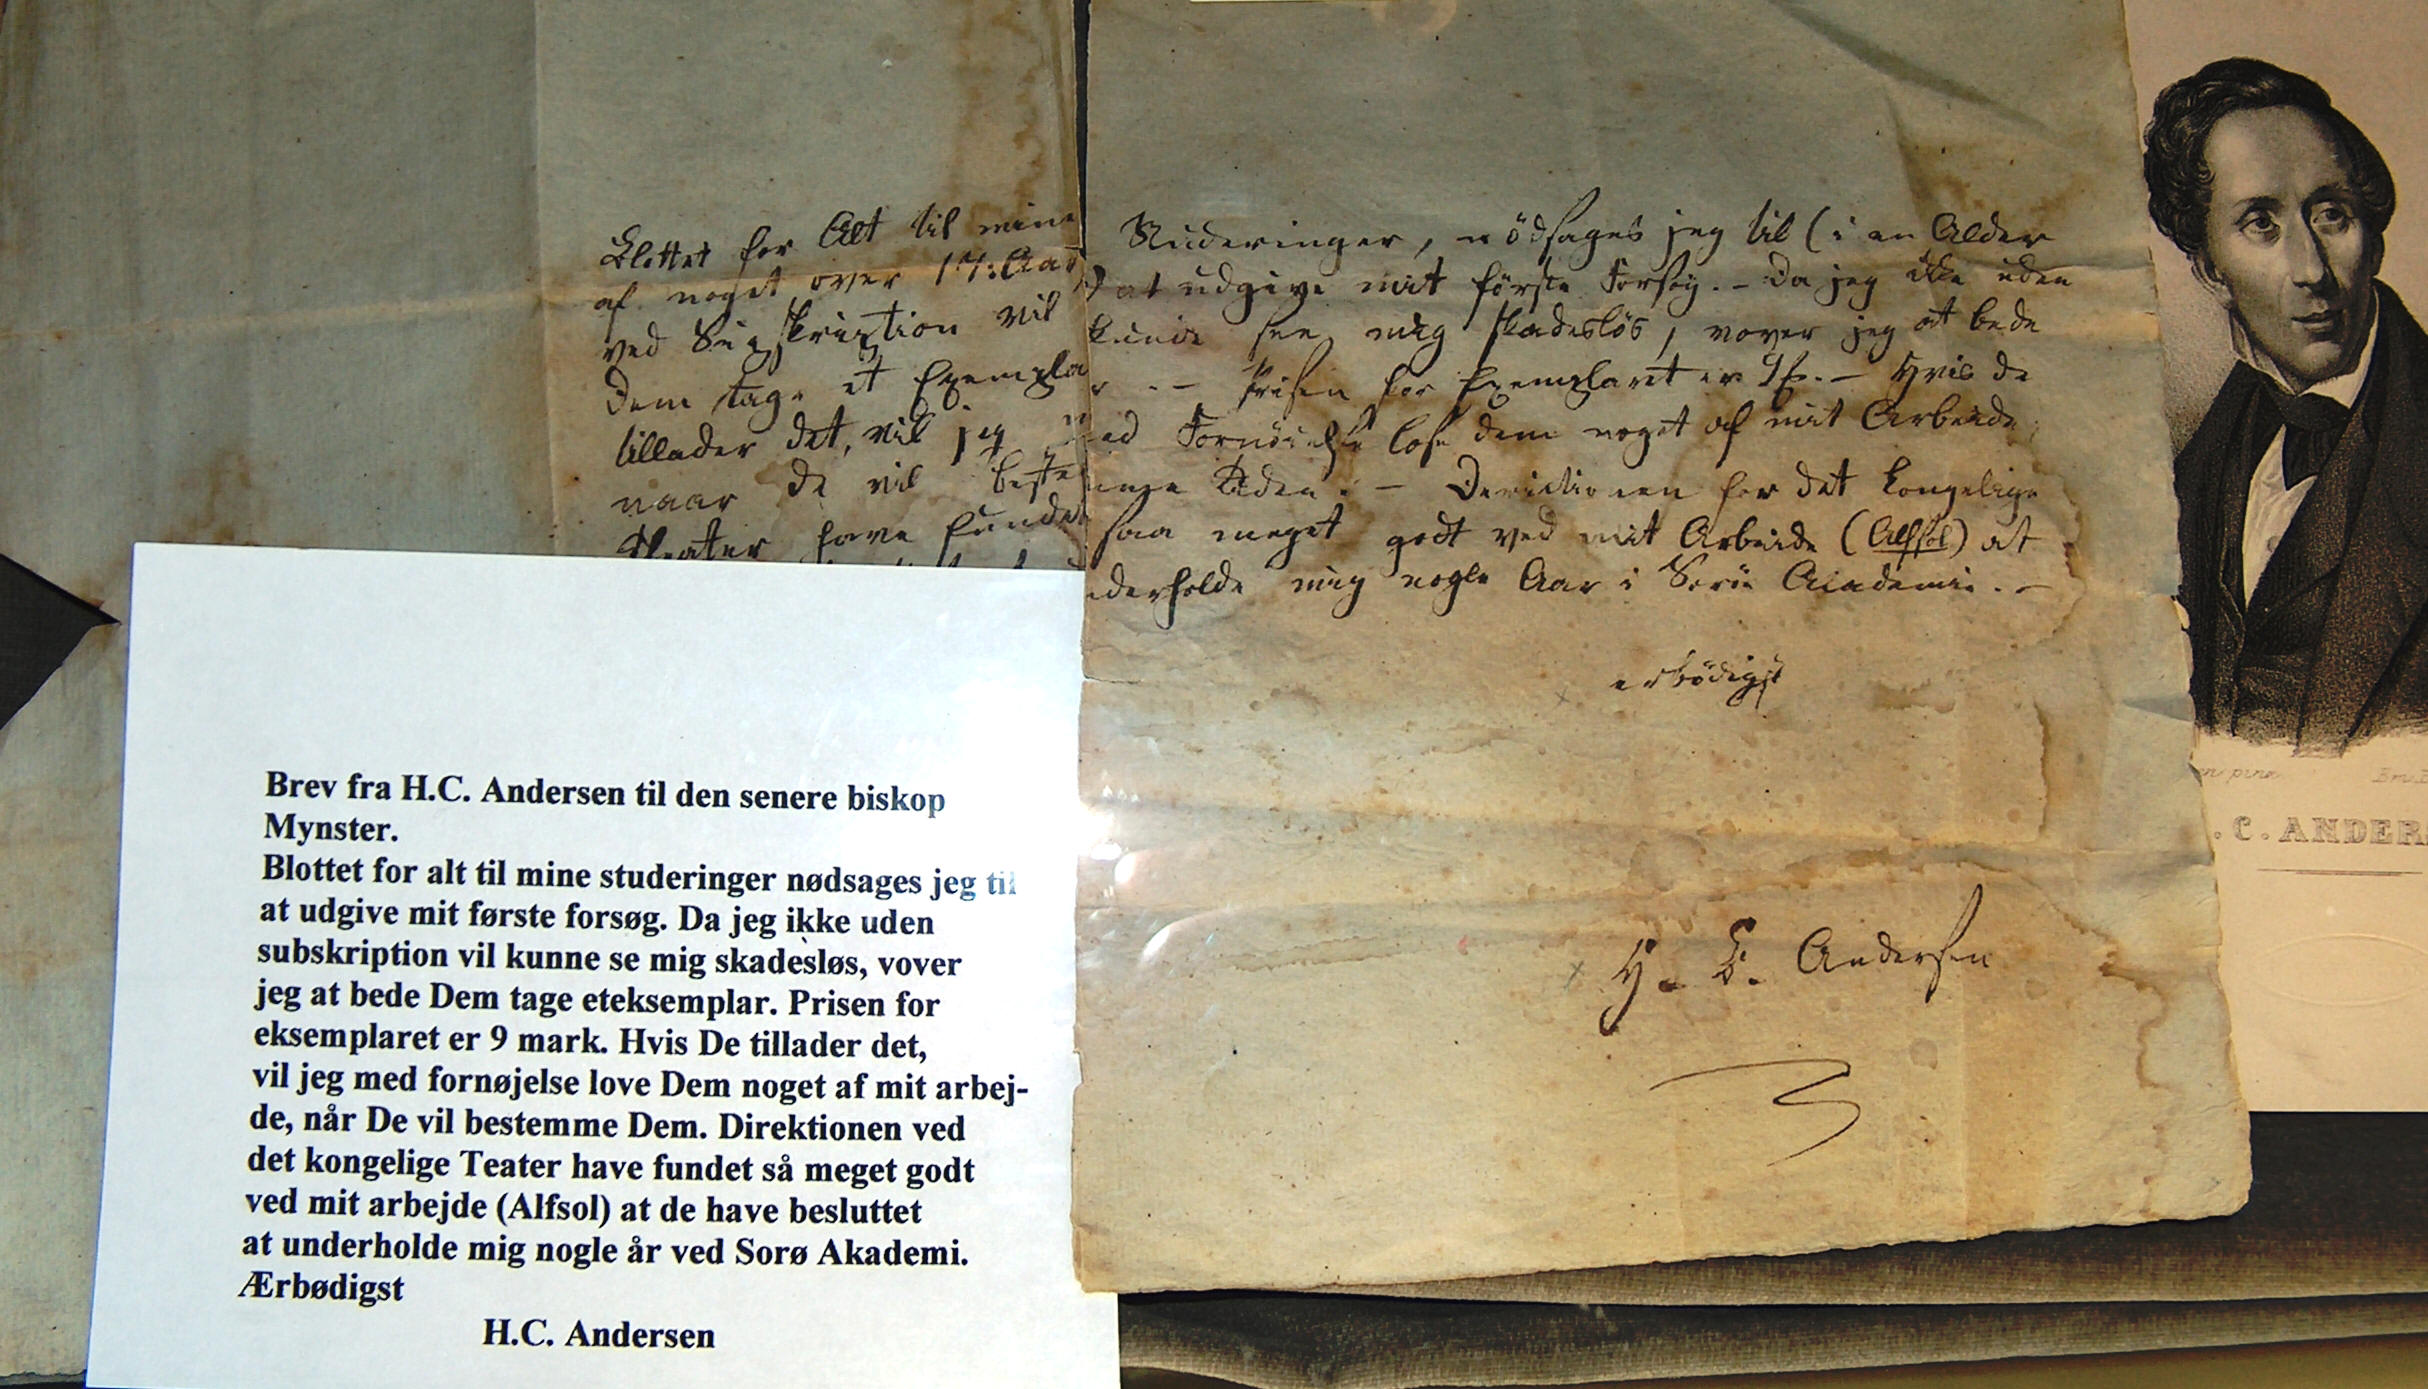 Blottet for Alt til mine Studeringer, nödsages jeg til (i en Alder
af noget over 17: Aar) at udgive mit förste Forsøg. – Da jeg ikke uden
ved Supskription vil kunde see mig skadeslös, vover jeg at bede
Dem tage et Exemplar. – Prisen for Exemplaret er 9 – Hvis De
tillader det, vil jeg med Fornöielse læse dem noget af mit Arbeide,
naar De vil Tiden. – Derictionen for det kongelige
Theater have fundet saa meget godt ved mit Arbeide (Alfsol) at
underholde mig nogle Aar i Soröe Academie. –
erbödigst
H. C. Andersen
Brev fra H.C. Andersen til den senere biskop
Mynster.
Blottet for alt til mine studeringer nødsages jeg til
at udgive mit første forsøg. Da jeg ikke uden
subskription vil kunne se mig skadesløs, vover
jeg at bede Dem tage eteksemplar. Prisen for
eksemplaret er 9 mark. Hvis De tillader det,
vil jeg med fornøjelse love Dem noget af mit arbej-
de, når De vil bestemme Dem. Direktionen ved
det kongelige Teater have fundet så meget godt
ved mit arbejde (Alfsol) at de have besluttet
at underholde mig nogle år ved Sorø Akademi.
Ærbødigst
H.C. Andersen
. C. ANDER